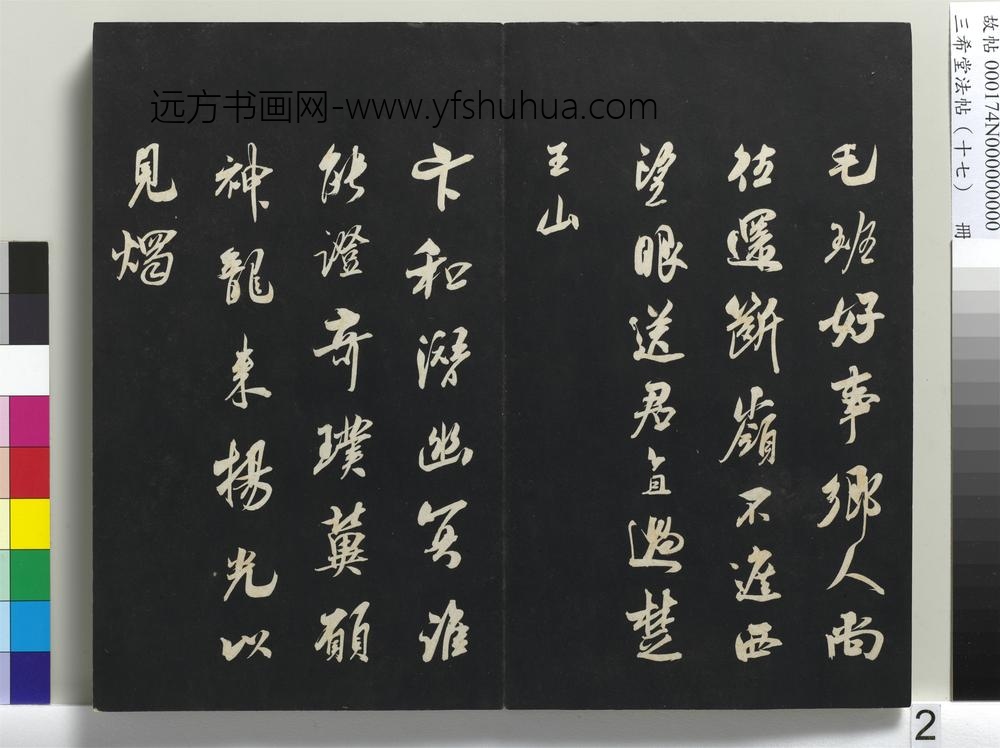 毛班好事鄉人尚
往還斷嶺不遮西
望眼送君直過楚
王山
卞和潛幽冥誰
能證奇璞冀願
神龍来揚光以
見燭
远方书画网-www.yfshuhua.com
故帖 000174N000000000
三希堂法帖（十七） 冊
2